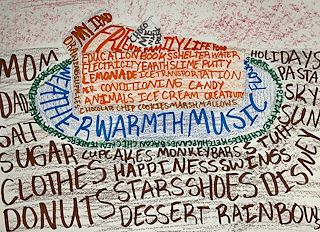 MY IPAD
FAMILY LIFE FOOD
EDUCATION BOOKS SHELTER WATER
ELECTRICITY EARTH SLIME PUTTY
LEMONADE ICE TRANSPORTATION
AIR CONDITIONING CANDY
ANIMALS ICE CREAM CREATIVITY
CHOCOLATE CHIP COOKIES MARSHMALLOWS
WEATHER WARMTH MUSIC
MOM
DAD
SALT
SUGAR
CLOTHES
DONUTS
HOLIDAYS
PASTA
SKY
SUN
CUPCAKES MONKEYBARS
HAPPINESS SWINGS
STARS SHOES DISNEY
DESSERT RAINBOW